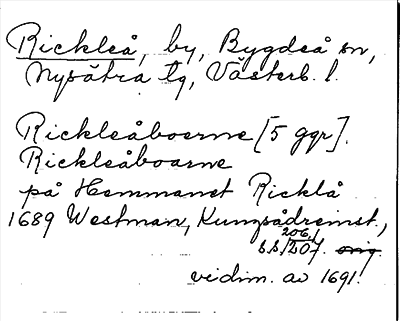 Rickleå, by, Bygdeå sn,
Nysätra tg, Västerb. l.
Rickleåboerne [5 ggr].
Rickleåboarne
på Hemmanet Ricklå
1689 Westman, Kungsådreinst.,
206,
ss. 207. orig.
vidim. av 1691.